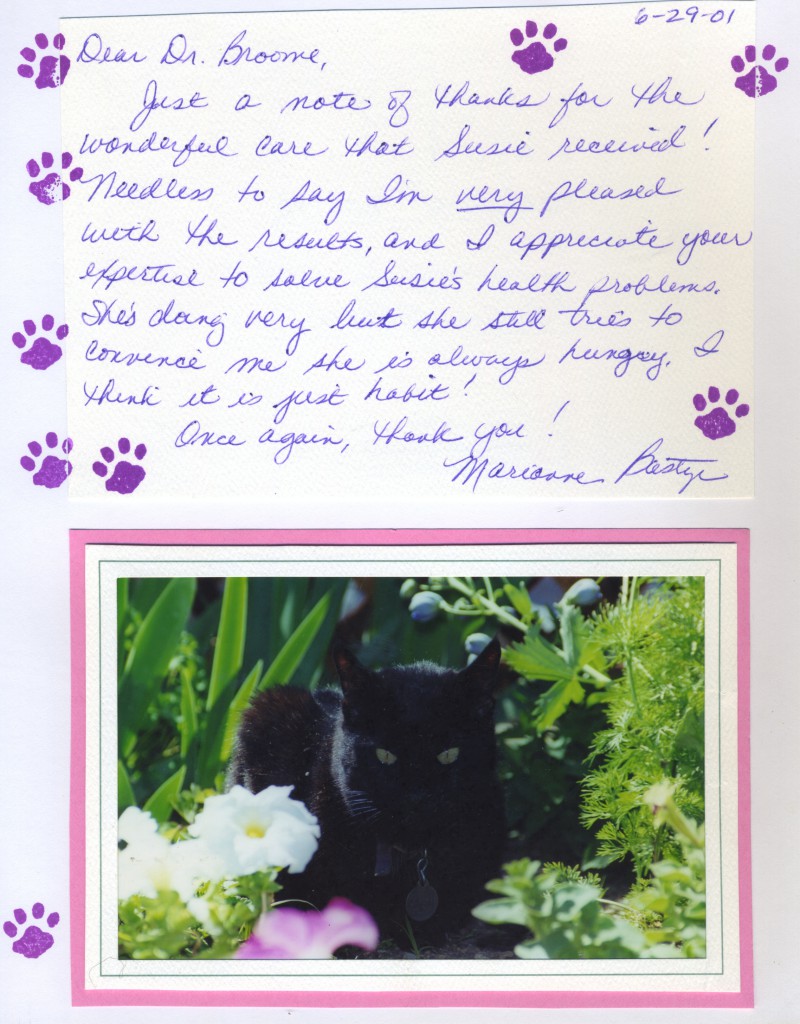 6-29-01
Dear Dr. Broome,
Just a note of thanks for the
wonderful care that Susie received!
Needless to say I'm very pleased
with the results, and I appreciate your
expertise to solve Susie's health problems.
She's doing very but she still tries to
convince me she is always hungry. I
think it is just habit!
Once again, thank you!
Marianne